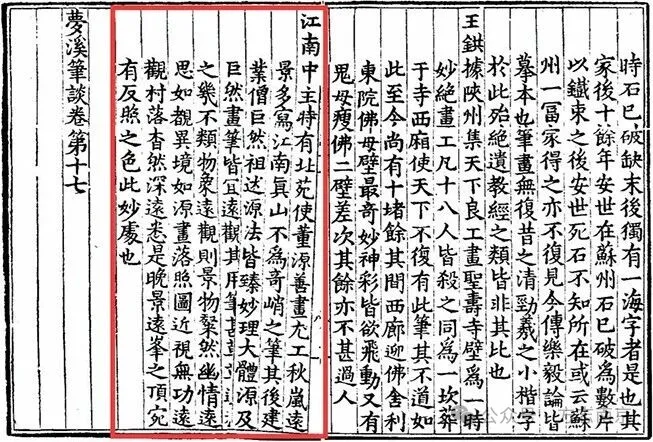 時石已破缺末後獨有一海字者是也其
家後十餘年安世在蘇州石已破為數片
以鐵束之後安世死石不知所在或云蘇
州一富家得之亦不復見今傳樂毅論皆
摹本也筆畫無復昔之清勁羲之小楷字
於此殆絶遺教經之類皆非其比也
王鉷據陝州集天下良工畫聖壽寺壁為一時
妙絶畫工凡十八人皆殺之同為一坎葬
于寺西廂使天下不復有此筆其不道如
此至今尚有十堵餘其間西廊迎佛舍利
東院佛母壁最奇妙神彩皆欲飛動又有
鬼母瘦佛二壁差次其餘亦不甚過人
江南中主時有北苑使董源善畫尤工秋嵐遠
景多寫江南真山不為奇峭之筆其後建
業僧巨然祖述源法皆臻妙理大體源及
巨然畫筆皆宜遠觀其用筆甚
之幾不類物象遠觀則景物粲然幽情遠
思如覩異境如源畫落照圖近視無功遠
觀村落杳然深遠悉是晚景遠峯之頂宛
有反照之色此妙處也
夢溪筆談卷第十七
公众号